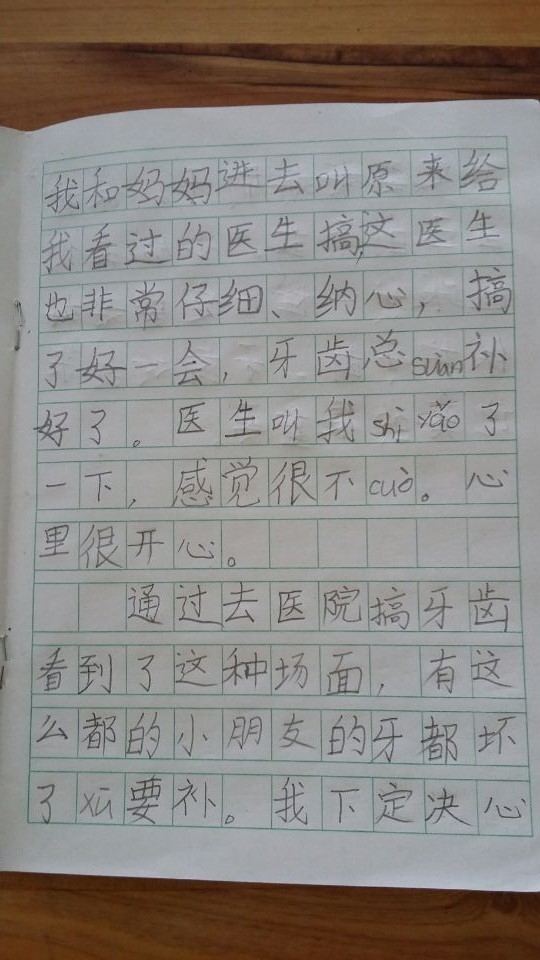 我和妈妈进去叫原来给
我看过的医生搞,这医生
也非常仔细、纳心,搞
了好一会,牙齿总suàn补
好了。医生叫我shì yǎo了
一下,感觉很不cuò。心
里很开心。
通过去医院搞牙齿
看到了这种场面,有这
么都的小朋友的牙都坏
了xū要补。我下定决心